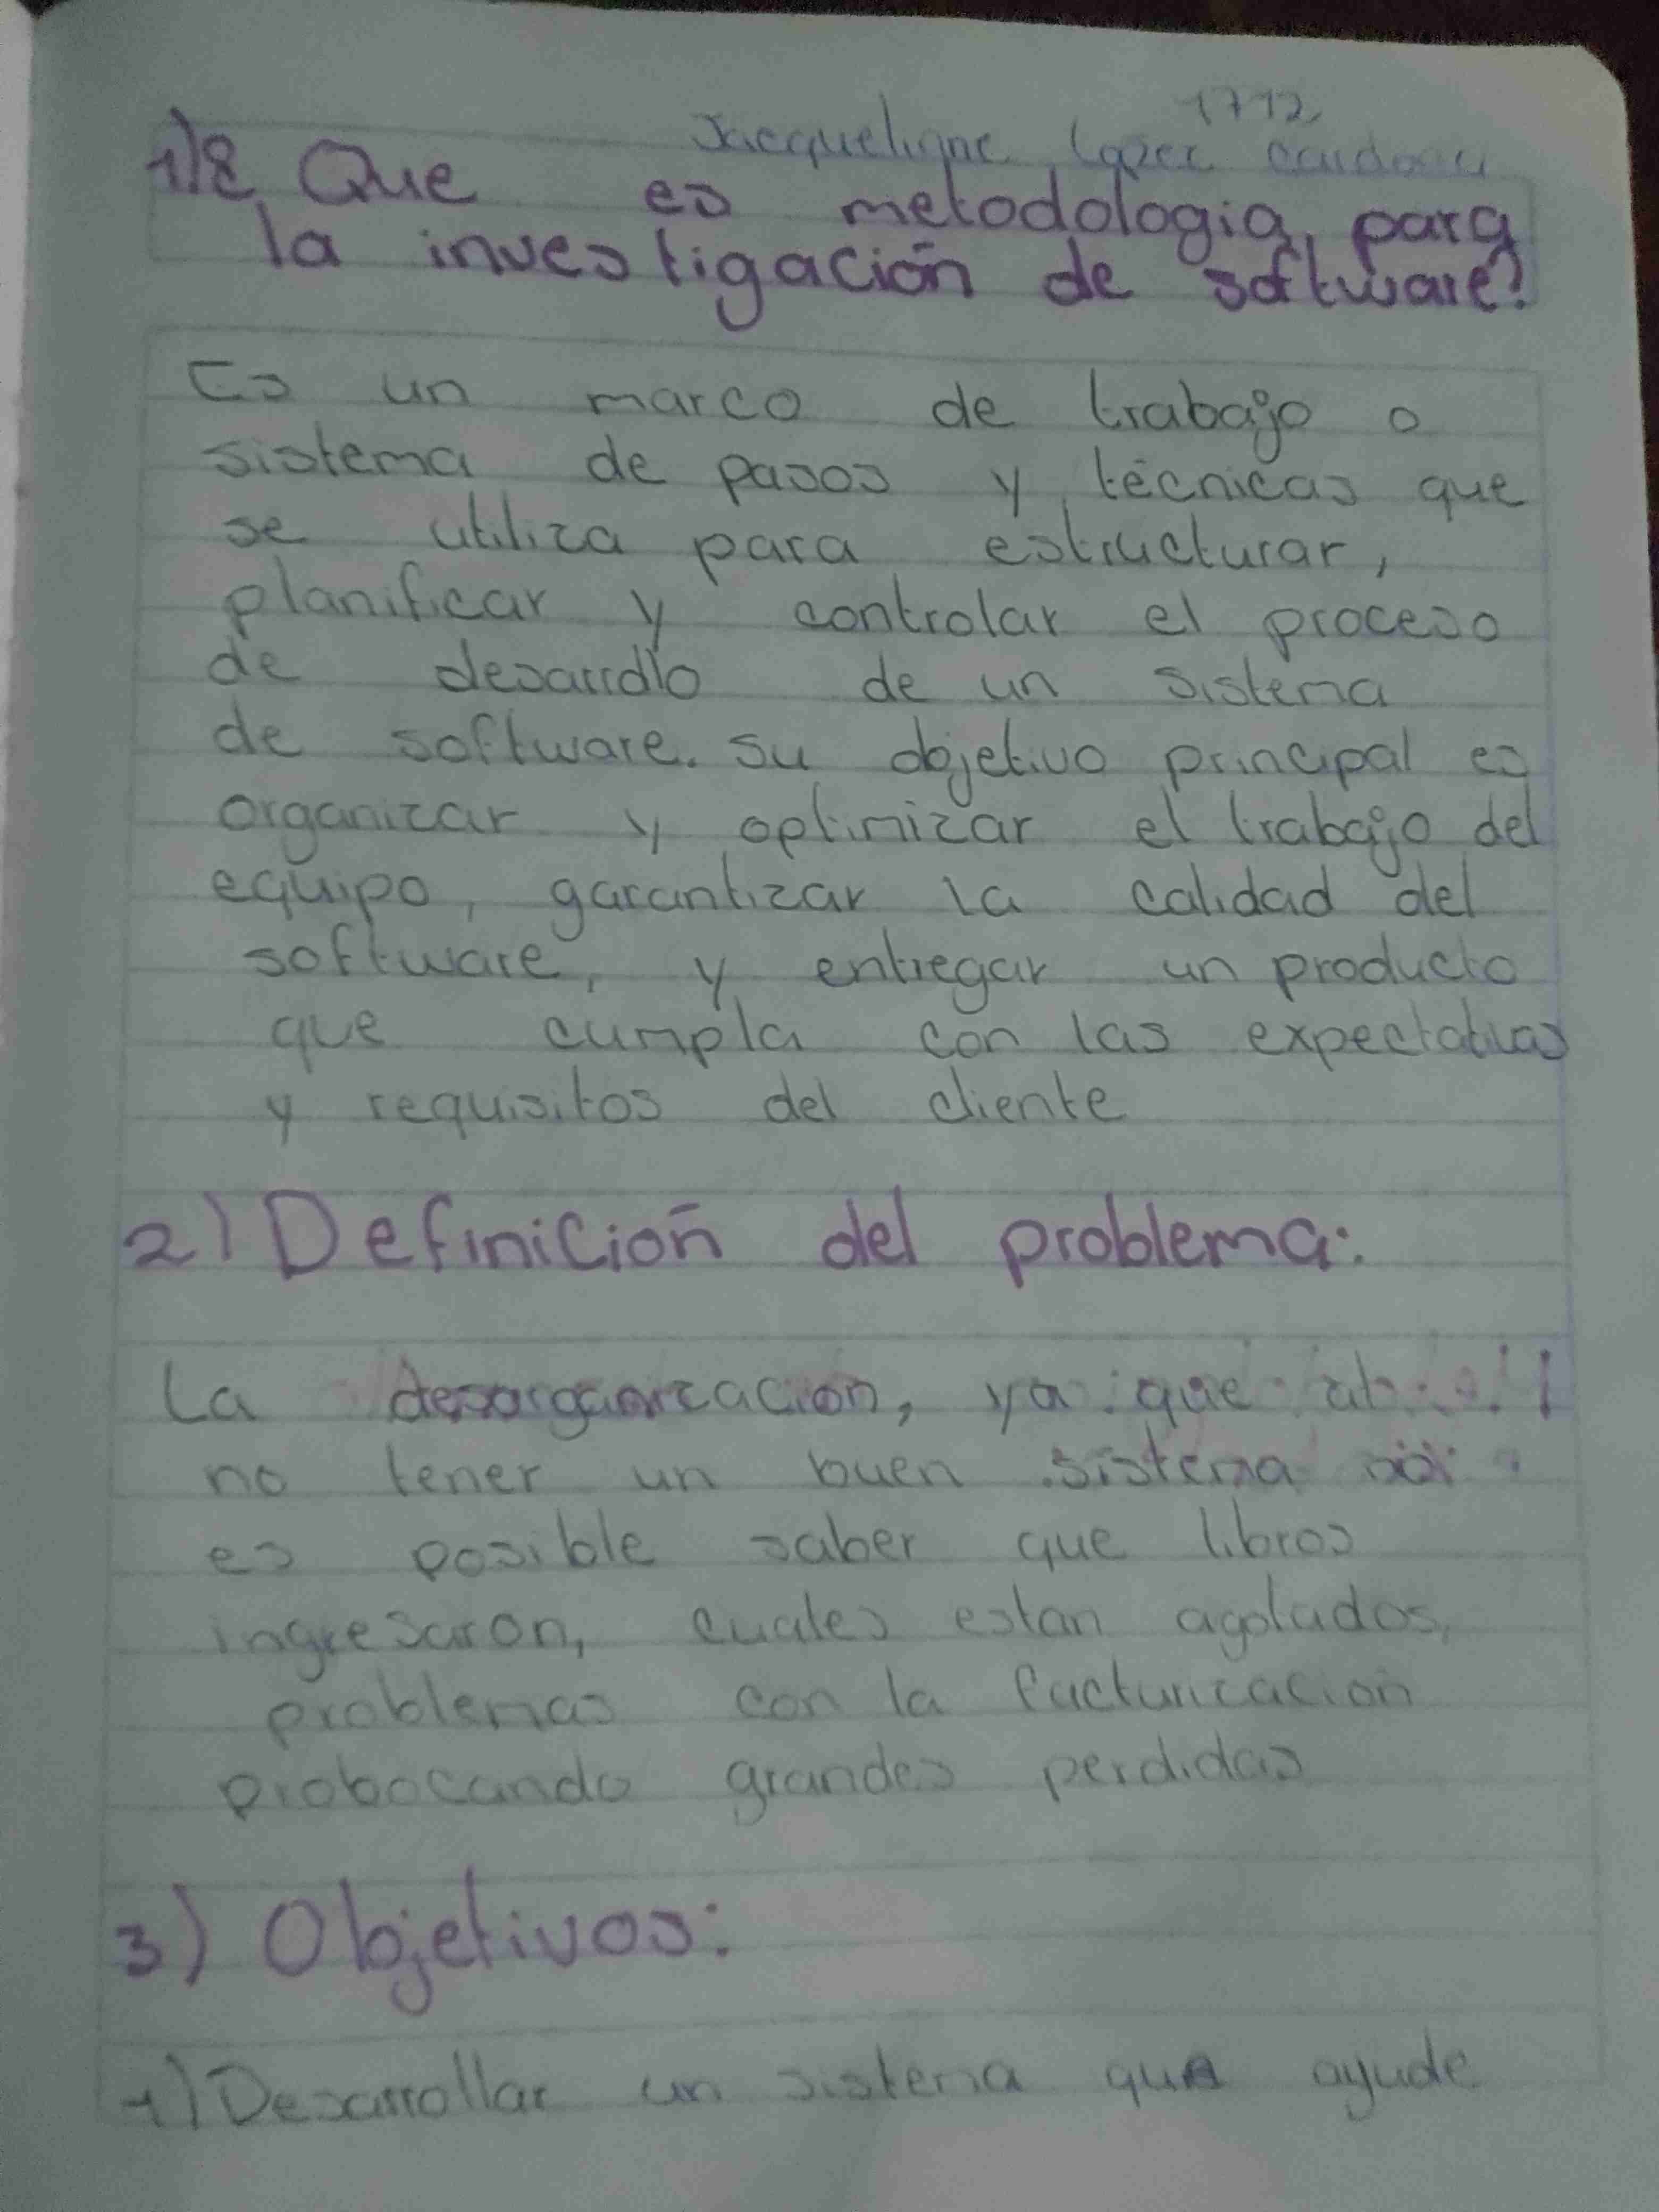 1712
Jacqueligne Lopez
1)¿ Que es metodologia para
la investigación de software?
Es un marco de trabajo o
sistema de pasos y técnicas que
se utiliza para estructurar,
planificar y controlar el proceso
de desarrollo de un sistema
de software. su objetivo principal es
organizar y optimizar el trabajo del
equipo, garantizar la calidad del
software, y entregar un producto
que cumpla con las expectativas
y requisitos del cliente
2) Definición del problema:
La desorganizacion, ya que al
no tener un buen sistema no
es posible saber que libros
ingresaron, cuales estan agotados,
problemas con la facturicacion
probocando grandes perdidas
3) Objetivos:
1) Desarrollar un sistema que ayude